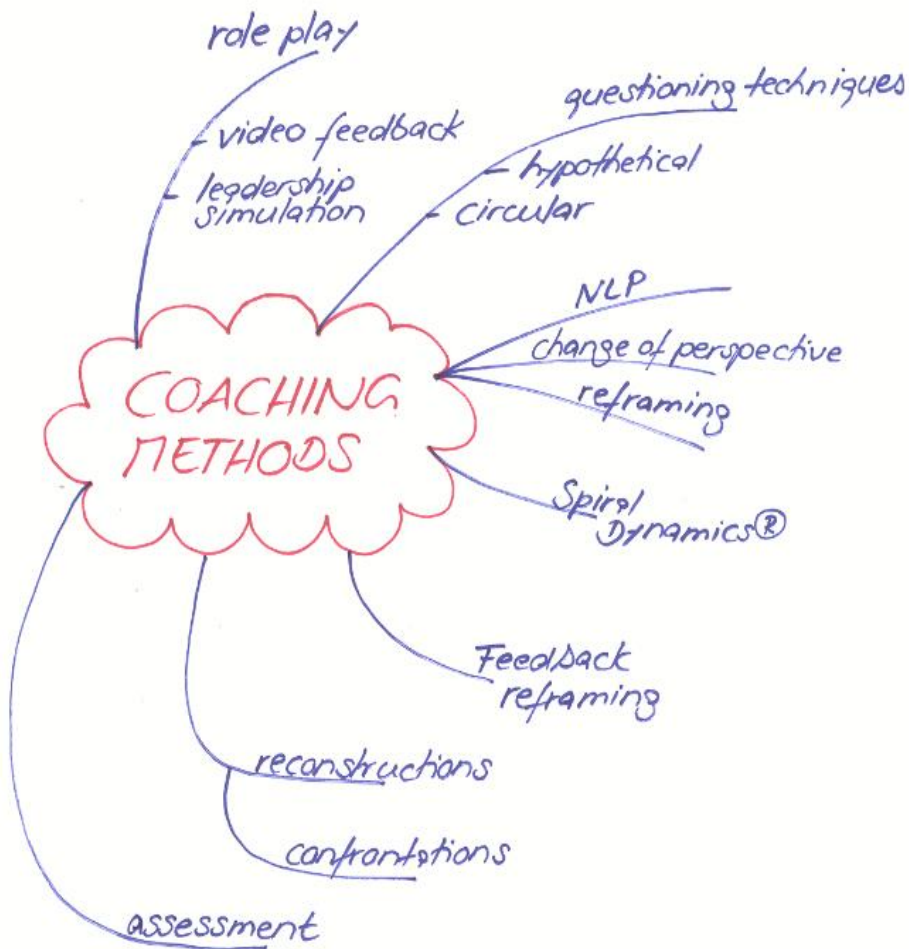 role play
video feedback
leadership
simulation
questioning techniques
hypothetical
circular
COACHING
METHODS
NLP
change of perspective
reframing
Spiral
Dynamics®
Feedback
reframing
reconstructions
confrontations
assessment